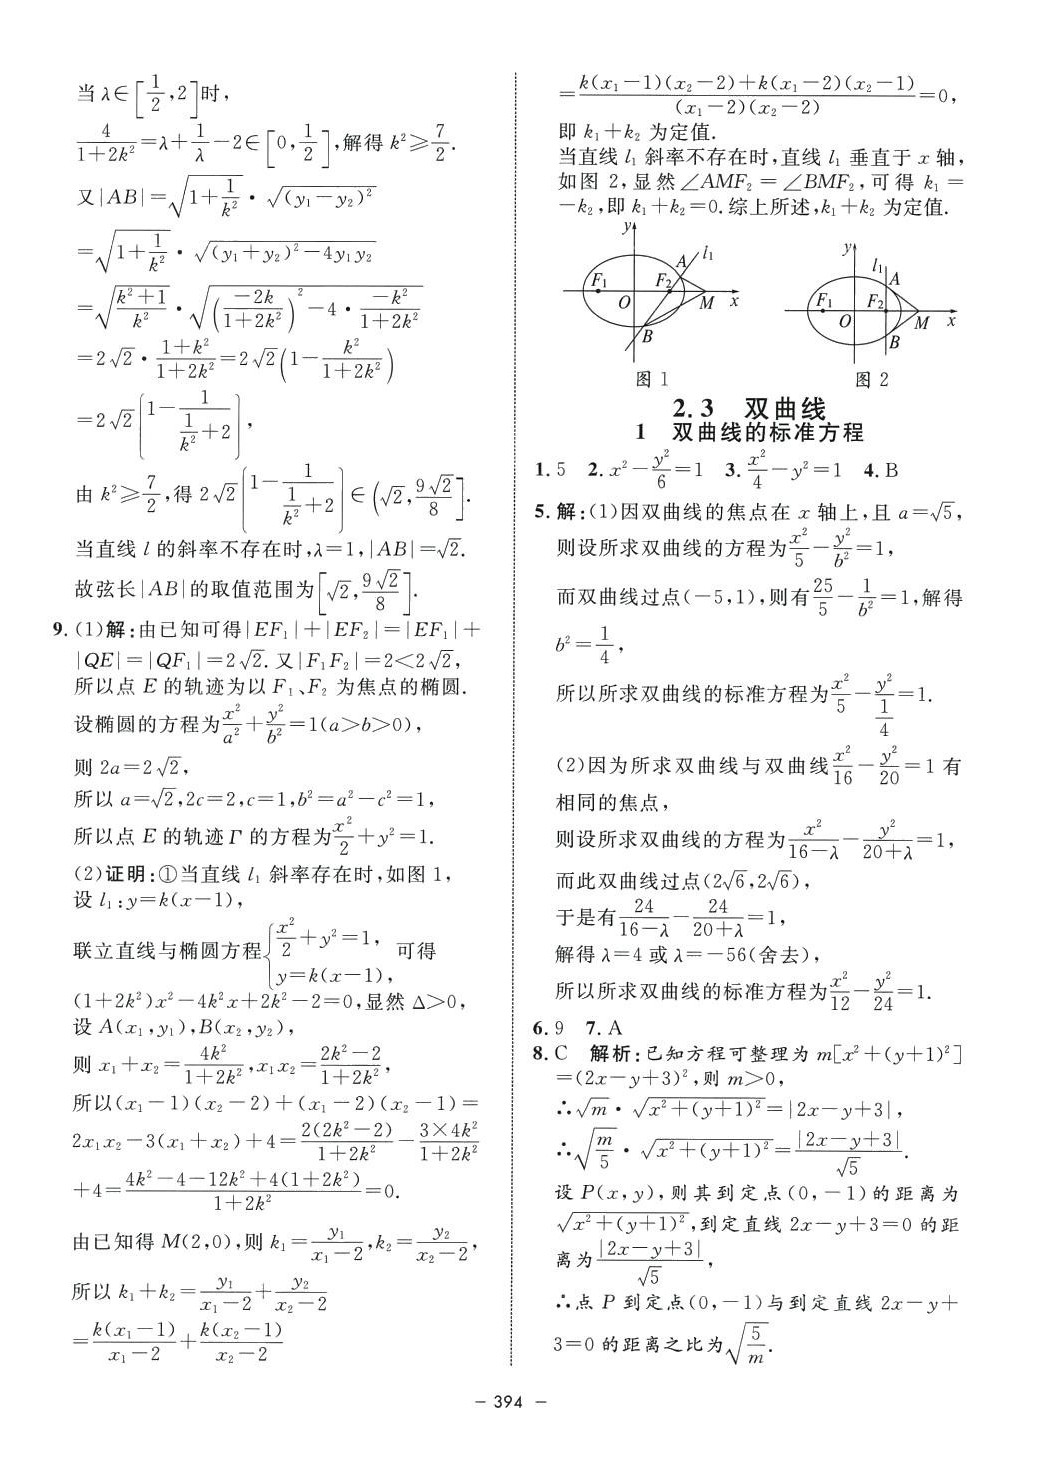 当 λ∈[1/2,2]时,
4/(1+2k²)=λ+1/λ-2∈[0,1/2],解得 k²≥7/2.
又|AB|=√(1+1/k²)·√((y₁-y₂)²)
=√(1+1/k²)·√((y₁+y₂)²-4y₁y₂)
=√((k²+1)/k²)·√((-2k/(1+2k²))²-4·(-k²)/(1+2k²))
=2√2·(1+k²)/(1+2k²)=2√2(1-k²/(1+2k²))
=2√2[1-1/(1/k²+2)],
由 k²≥7/2,得 2√2[1-1/(1/k²+2)]∈(√2,9√2/8].
当直线 l 的斜率不存在时,λ=1,|AB|=√2.
故弦长|AB|的取值范围为[√2,9√2/8].
9.(1)解:由已知可得|EF₁|+|EF₂|=|EF₁|+
|QE|=|QF₁|=2√2.又|F₁F₂|=2<2√2,
所以点 E 的轨迹为以 F₁、F₂ 为焦点的椭圆.
设椭圆的方程为x²/a²+y²/b²=1(a>b>0),
则 2a=2√2,
所以 a=√2,2c=2,c=1,b²=a²-c²=1,
所以点 E 的轨迹Γ的方程为x²/2+y²=1.
(2)证明:①当直线 l₁ 斜率存在时,如图 1,
设 l₁:y=k(x-1),
联立直线与椭圆方程{x²/2+y²=1, y=k(x-1), 可得
(1+2k²)x²-4k²x+2k²-2=0,显然 Δ>0,
设 A(x₁,y₁),B(x₂,y₂),
则 x₁+x₂=4k²/(1+2k²),x₁x₂=(2k²-2)/(1+2k²),
所以(x₁-1)(x₂-2)+(x₁-2)(x₂-1)=
2x₁x₂-3(x₁+x₂)+4=2(2k²-2)/(1+2k²)-3×4k²/(1+2k²)
+4=(4k²-4-12k²+4(1+2k²))/(1+2k²)=0.
由已知得 M(2,0),则 k₁=y₁/(x₁-2),k₂=y₂/(x₂-2),
所以 k₁+k₂=y₁/(x₁-2)+y₂/(x₂-2)
=k(x₁-1)/(x₁-2)+k(x₂-1)/(x₂-2)
=(k(x₁-1)(x₂-2)+k(x₁-2)(x₂-1))/((x₁-2)(x₂-2))=0,
即 k₁+k₂ 为定值.
当直线 l₁ 斜率不存在时,直线 l₁ 垂直于 x 轴,
如图 2,显然∠AMF₂=∠BMF₂,可得 k₁=
-k₂,即 k₁+k₂=0.综上所述,k₁+k₂ 为定值.
y A l₁ F₁ F₂ O M x B
图 1
y l₁ A F₁ F₂ O M x B
图 2
2.3 双曲线
1 双曲线的标准方程
1.5 2.x²-y²/6=1 3.x²/4-y²=1 4.B
5.解:(1)因双曲线的焦点在 x 轴上,且 a=√5,
则设所求双曲线的方程为x²/5-y²/b²=1,
而双曲线过点(-5,1),则有25/5-1/b²=1,解得
b²=1/4,
所以所求双曲线的标准方程为x²/5-y²/(1/4)=1.
(2)因为所求双曲线与双曲线x²/16-y²/20=1 有
相同的焦点,
则设所求双曲线的方程为x²/(16-λ)-y²/(20+λ)=1,
而此双曲线过点(2√6,2√6),
于是有24/(16-λ)-24/(20+λ)=1,
解得 λ=4 或 λ=-56(舍去),
所以所求双曲线的标准方程为x²/12-y²/24=1.
6.9 7.A
8.C 解析:已知方程可整理为 m[x²+(y+1)²]
=(2x-y+3)²,则 m>0,
∴√m·√(x²+(y+1)²)=|2x-y+3|,
∴√(m/5)·√(x²+(y+1)²)=|2x-y+3|/√5.
设 P(x,y),则其到定点(0,-1)的距离为
√(x²+(y+1)²),到定直线 2x-y+3=0 的距
离为|2x-y+3|/√5,
∴点 P 到定点(0,-1)与到定直线 2x-y+
3=0 的距离之比为√(5/m).
- 394 -